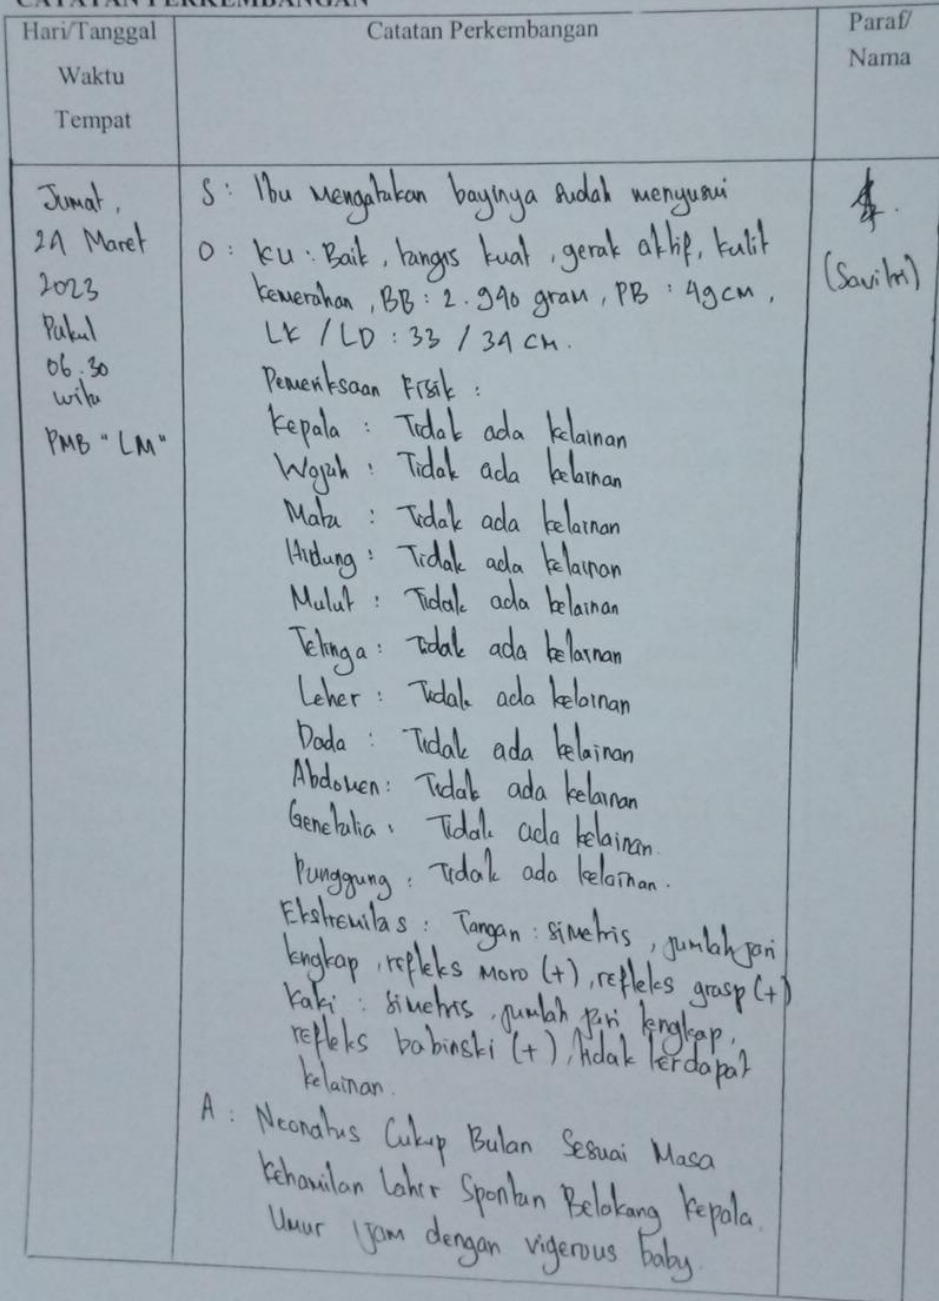 CATATAN PERKEMBANGAN
Hari/Tanggal
Waktu
Tempat
Catatan Perkembangan
Paraf/
Nama
Jumat,
24 Maret
2023
Pukul
06.30
wita
PMB "LM"
S : Ibu mengatakan bayinya sudah menyusui
O : KU : Baik, tangis kuat, gerak aktif, kulit
kemerahan, BB : 2.940 gram, PB : 49 cm,
LK / LD : 33 / 34 cm.
Pemeriksaan Fisik :
Kepala : Tidak ada kelainan
Wajah : Tidak ada kelainan
Mata : Tidak ada kelainan
Hidung : Tidak ada kelainan
Mulut : Tidak ada kelainan
Telinga : Tidak ada kelainan
Leher : Tidak ada kelainan
Dada : Tidak ada kelainan
Abdomen : Tidak ada kelainan
Genetalia : Tidak ada kelainan.
Punggung : Tidak ada kelainan.
Ekstremitas : Tangan : simetris, jumlah jari
lengkap, refleks moro (+), refleks grasp (+)
Kaki : simetris, jumlah jari lengkap,
refleks babinski (+), tidak terdapat
kelainan.
A : Neonatus Cukup Bulan Sesuai Masa
Kehamilan Lahir Spontan Belakang Kepala
Umur 1 jam dengan vigerous baby.
(Savitri)